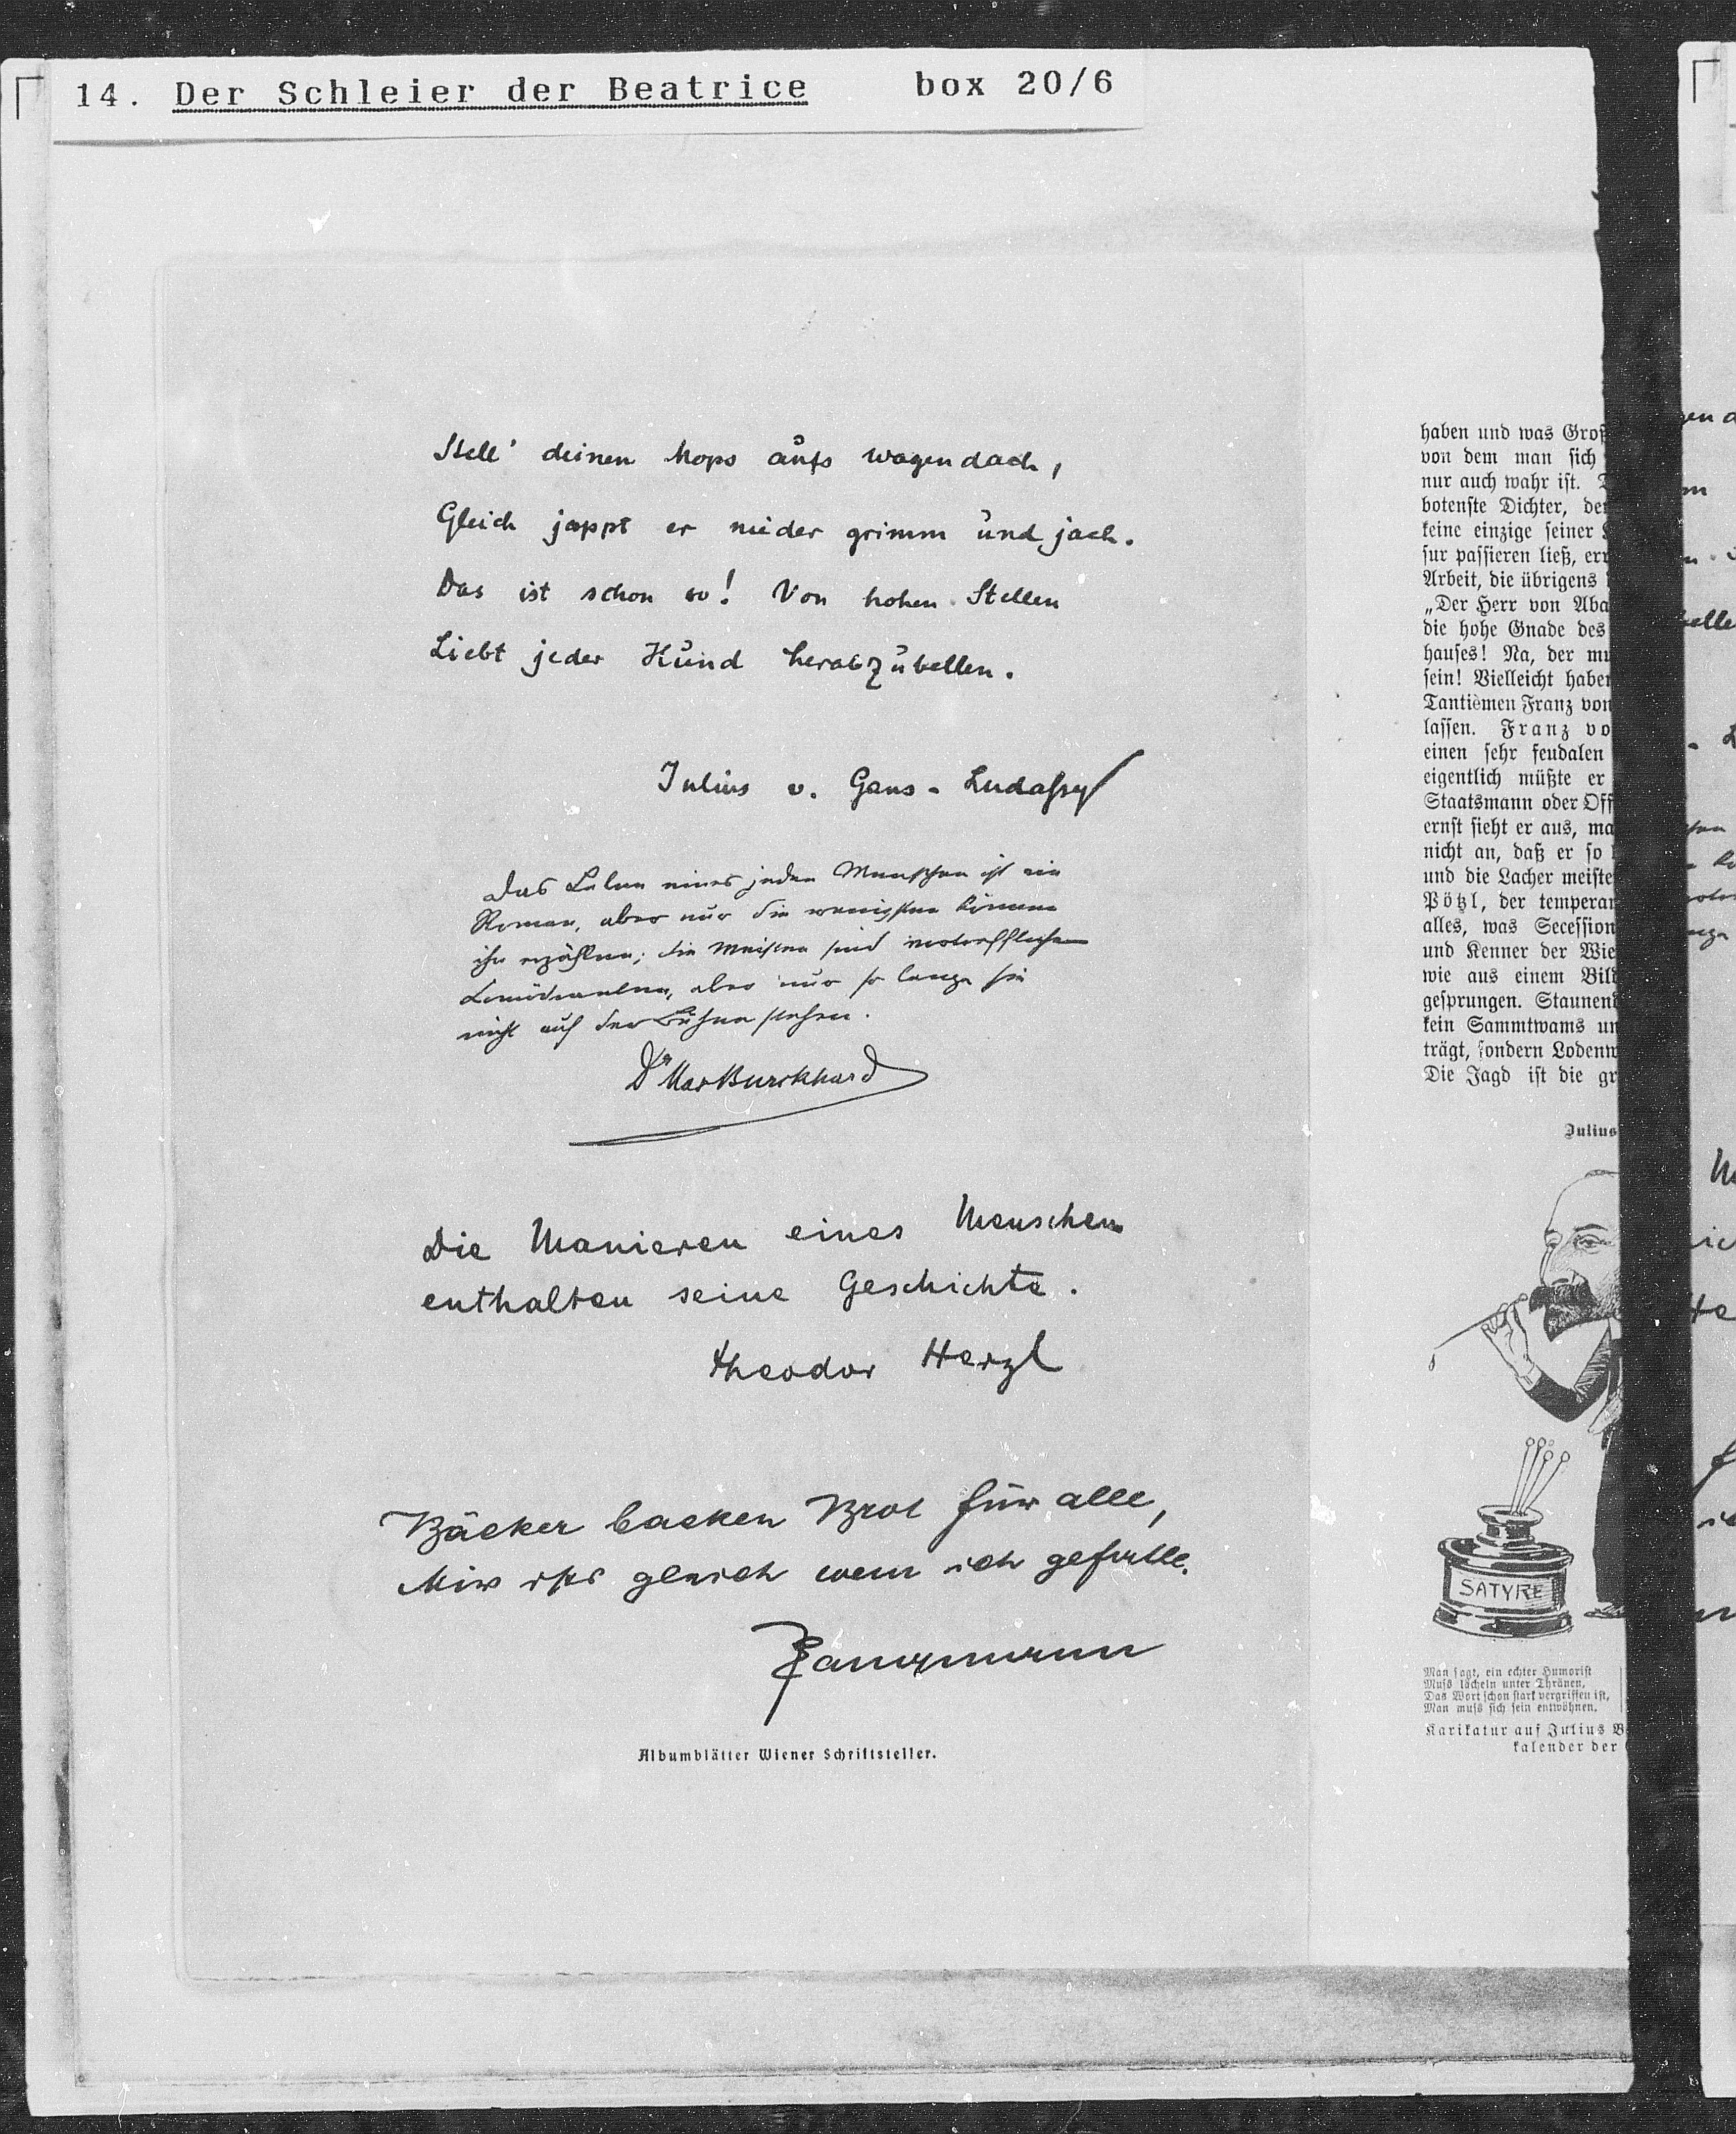 14. Der Schleier der Beatrice box 20/6
Stell' deinen Mops aufs Wagendach,
Gleich jappt er nieder grimm und jach.
Das ist schon so! Von hohen Stellen
Liebt jeder Hund herabzubellen.
Julius v. Gans-Ludassy
Das Leben eines jeden Menschen ist ein
Roman, aber nur die wenigsten können
ihn erzählen; die Meisten sind vortreffliche
Komödianten, aber nur so lange sie
nicht auf der Bühne stehen.
Dr Max Burckhard
Die Manieren eines Menschen
enthalten seine Geschichte.
Theodor Herzl
Bäcker backen Brot für alle,
Mir ists gleich wem ich gefalle.
Albumblätter Wiener Schriftsteller.
haben und was Groß
von dem man sich
nur auch wahr ist.
botenste Dichter, de
keine einzige seiner
sur passieren ließ, er
Arbeit, die übrigens
„Der Herr von Aba
die hohe Gnade des
hauses! Na, der mu
sein! Vielleicht habe
Tantièmen Franz von
lassen. Franz vo
einen sehr feudalen
eigentlich müßte er
Staatsmann oder Off
ernst sieht er aus, ma
nicht an, daß er so
und die Lacher meiste
Pötzl, der tempera
alles, was Secession
und Kenner der Wie
wie aus einem Bil
gesprungen. Staunen
kein Sammtwams un
trägt, sondern Loden
Die Jagd ist die gr
Julius
SATYRE
Man sagt, ein echter Humorist
Muß lächeln unter Thränen,
Das Wort schon stark vergriffen ist,
Man muß sich sein entwöhnen.
Karikatur auf Julius B
kalender der